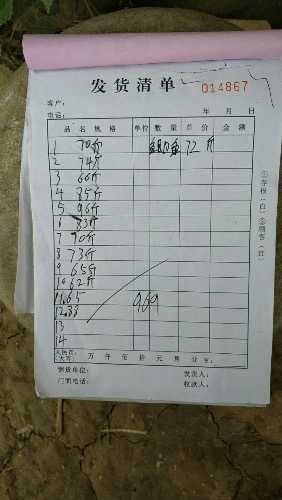 发货清单 014867
客户：
电话： 年 月 日
品名规格 单位 数量 单价 金额
1 70斤 72斤
2 74斤
3 60斤
4 85斤
5 96斤
6 83斤
7 70斤
8 73斤
9 65斤
10 62斤
11 65 969
12 88
13
14
人民币：(大写) 万 仟 佰 拾 元 角 分 ¥：
供货单位： 发货人：
门市电话： 收款人：
①存根（白） ②顾客（红）